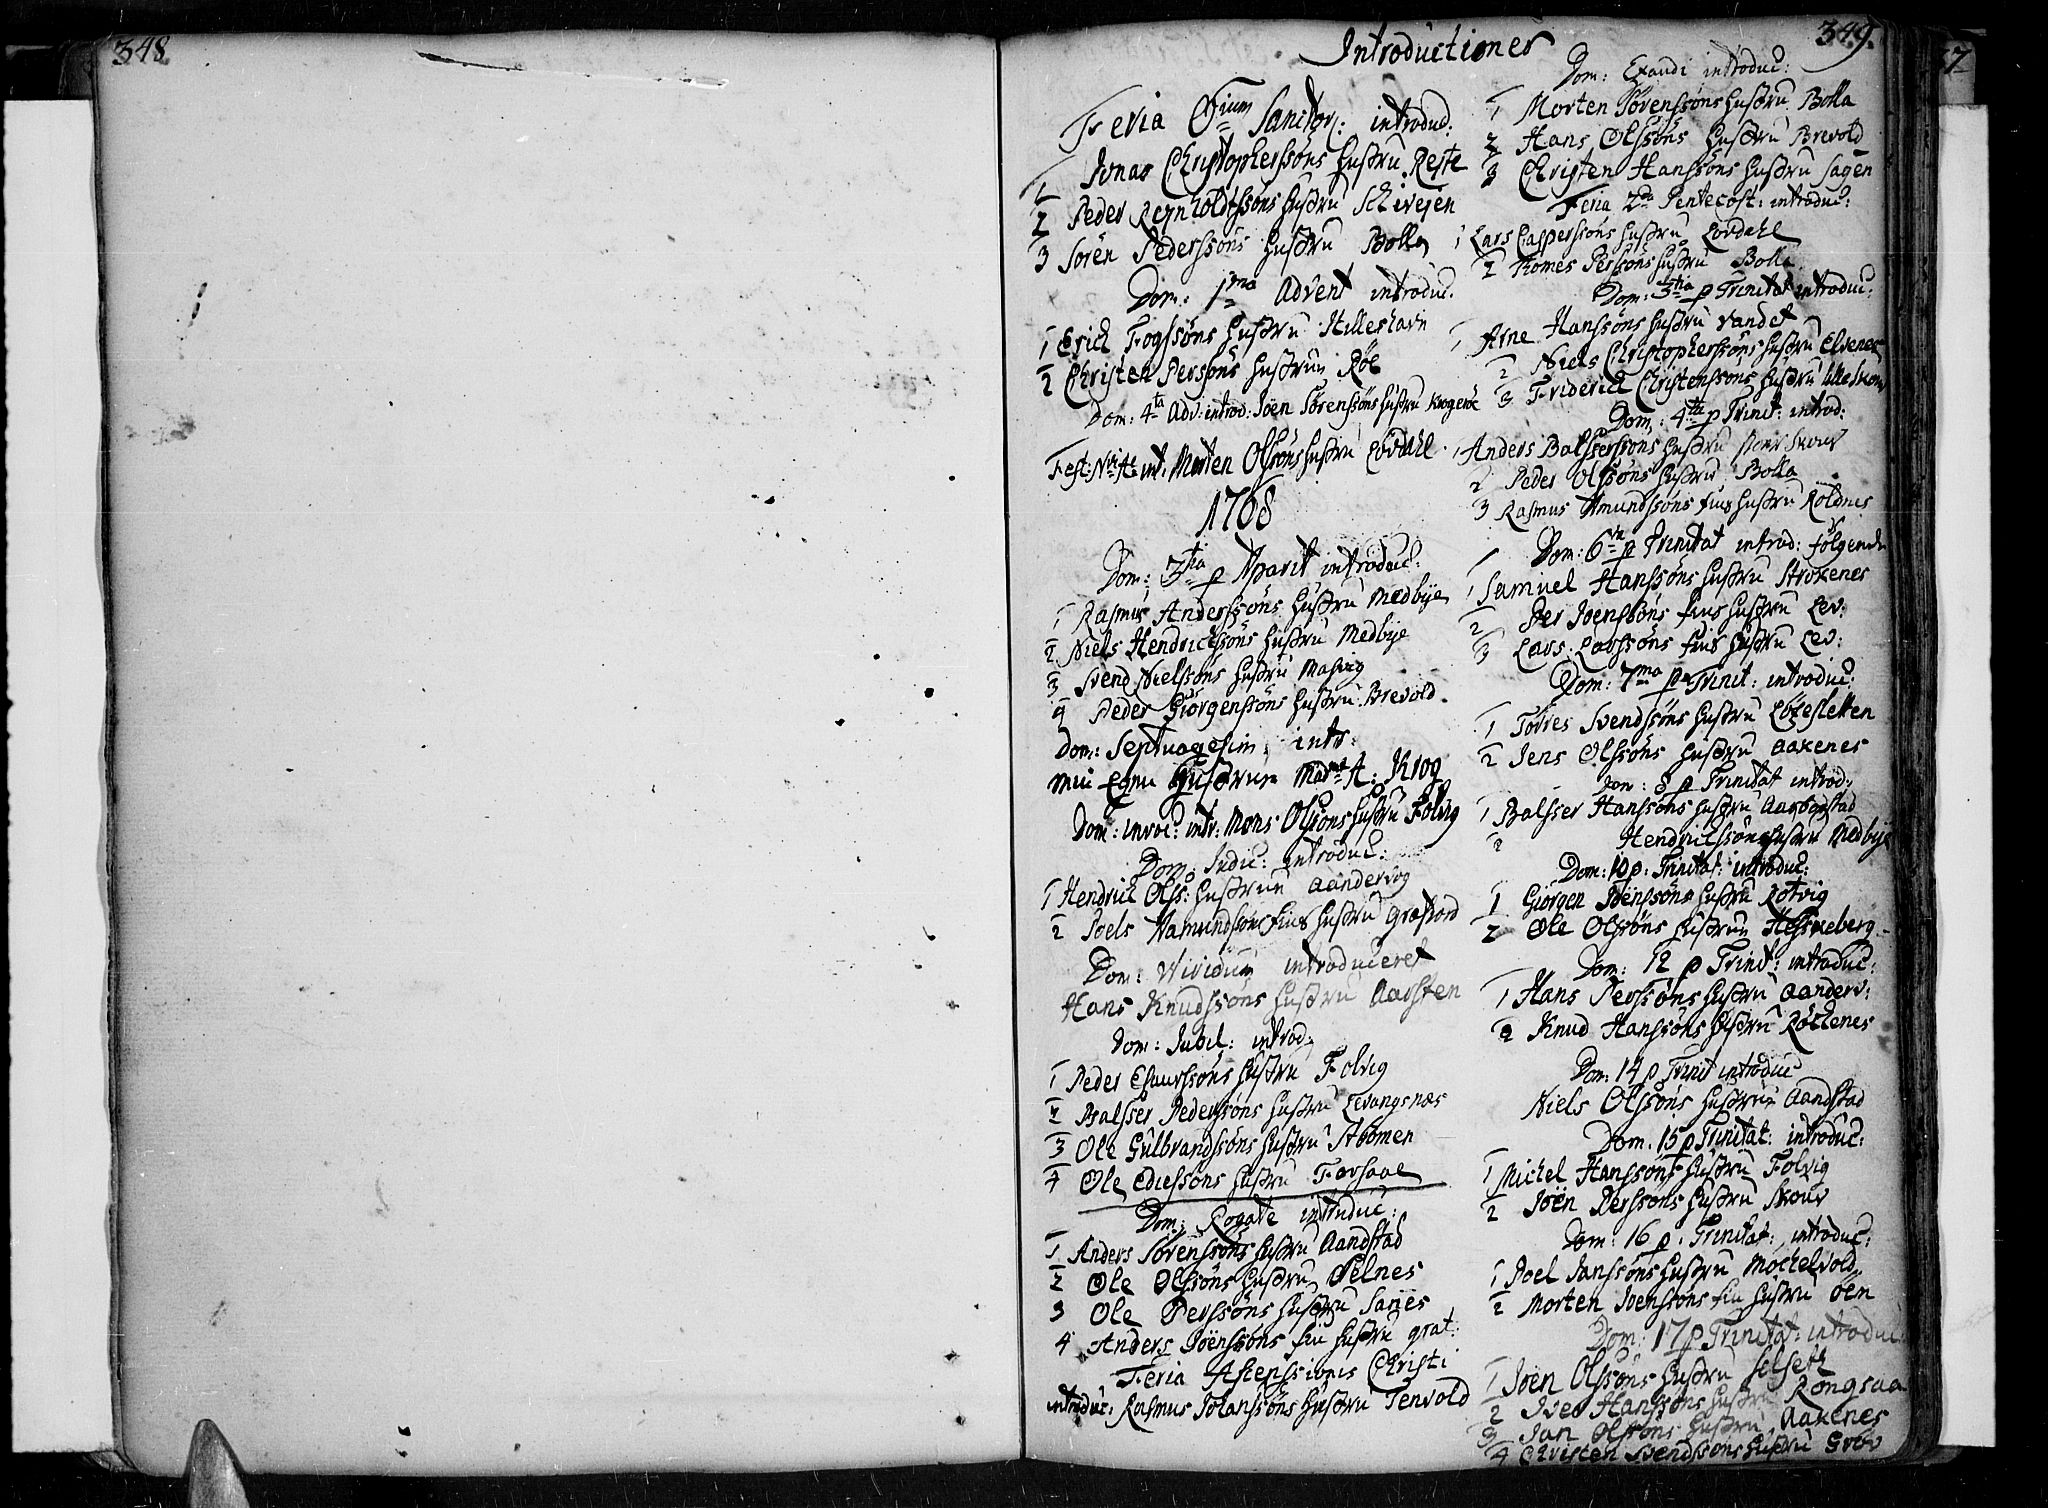 348.
349.
Introductioner
Feria Oium Sanctor: introduc:
1 Jonas Christophersøns Hustru Reste
2 Peder Reynholdtssøns Hustru
3 Søren Pederssøns Hustru Bolla
Dom: 1ma Advent introduc.
1 Erich Fogssøns Hustru Hilleshavn
2 Christen Persøns Hustrue Røe
Dom: 4ta Adv: introd: Joen Sørenssøns Hustru
Fest: int. Morten Olssøns Hustru Løvdahl.
1768
Dom: 3tia p Aparit introduc:
1 Rasmus Anderssøns Hustru Medbye
2 Niels Hendrichssøns Hustru Medbye
3 Svend Nielssøns Hustru Masvig
4 Peder Giørgenssøns Hustru Brevold.
Dom: Septuagesim: intr:
Min Egen Hustrue Madme A: Krog
Dom: invoc: intr: Mons Olssøns Hustru Folvig
Dom: Judic: introduc:
1 Hendrich Olss: Hustrue Aandervog
2 Poels Hustru Grafiord
Dom: introduceret
Hans Knudssøns Hustru Aarsten
Dom: Jubil: introd:
1 Peder Hustru Folvig
2 Balsser Pederssøns Hustru Levangsnæs
3 Ole Gulbrandssøns Hustru Abomen
4 Ole Hustru Forsaae
Dom: Rogate introduc:
1 Anders Sørenssøns Hustru Aandstad
2 Ole Olssøns Hustru Selnes
3 Ole Perssøns Hustru
4 Anders Joenssøns fin Hustru grat:
Feria Ascenssionis Christi
introduc: Rasmus Johanssøns Hustru Tenvold
Dom: Exaudi introduc:
1 Morten Sørenssøns Hustru Bolla
2 Hans Olssøns Hustru Brevold
3 Christen Hanssøns Hustru Sagen
Feria 2da Pentecost: introduc:
1 Lars Casperssøns Hustru Løvdahl
2 Tomes Perssøns Hustru Bolla
Dom: 3tia p Trinitat introduc:
1 Arne Hanssøns Hustru Vandet
2 Niels Christopherssøns Hustru Elvenes
3 Friderich Christenssøns Hustru Lilleskow
Dom: 4ta p Trinit: introd:
1 Anders Balsserssøns Hustru Skow
2 Peder Olssøns Hustru Bolla
3 Rasmus Amundssøns fins Hustru Roldnes
Dom: 6te p Trinitat introd: følgende
1 Samuel Hanssøns Hustru Stroxenes
2 Per Joenssøns fins Hustru Lev:
3 Lars Larssøns fins Hustru Lev:
Dom: 7ma p Trinit: introduc:
1 Torres Svendssøns Hustru
2 Jens Olssøns Hustru Aakenes
Dom: 8 p Trinitat introd:
1 Balsser Hanssøns Hustru
2 Hendrichssøns Hustru Medbye
Dom: 10 p: Trinitat: introduc:
1 Giørgen Joenssøns Hustru Rotvig
2 Ole Olssøns Hustrue Hesskeberg
Dom: 12 p Trinit: introduc:
1 Hans Perssøns Hustru Aanderv:
2 Knud Hanssøns Hustru Røckenes
Dom: 14 p Trinit introduc
Niels Olssøns Hustrue Aandstad
Dom. 15 p Trinitat: introduc:
1 Michel Hanssøns Hustru Folvig
2 Joen Perssøns Hustru Skow
Dom: 16 p. Trinitat: introduc:
1 Poel Janssøns Hustru Mockelvold
2 Morten Joenssøns fin Hustru Øen
Dom: 17 p Trinitat: introduc
1 Joen Olssøns Hustru Selseth
2 Iver Hanssøns Hustru Rongsaa
3 Jan Olssøns Hustru Aakenes
4 Christen Svendssøns Hustru Grøv